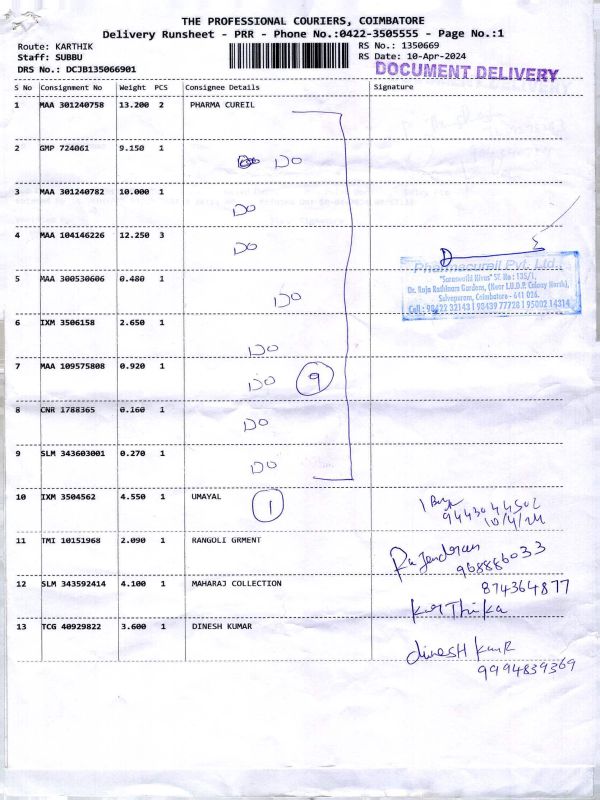 THE PROFESSIONAL COURIERS, COIMBATORE
Delivery Runsheet - PRR - Phone No.:0422-3505555 - Page No.:1
Route: KARTHIK RS No.: 1350669
Staff: SUBBU RS Date: 10-Apr-2024
DRS No.: DCJB135066901 DOCUMENT DELIVERY
S No Consignment No Weight PCS Consignee Details Signature
1 MAA 301240758 13.200 2 PHARMA CUREIL
2 GMP 724061 9.150 1 DO
3 MAA 301240782 10.000 1 DO
4 MAA 104146226 12.250 3 DO
Pharmacureil Pvt. Ltd.,
"Saraswathi Nivas" Sf. No : 135/1,
Dr. Raja Rathinam Gardens, (Near I.U.D.P. Colony North),
Selvapuram, Coimbatore - 641 026.
Cell : 98422 32143 | 98439 77728 | 95002 14314
5 MAA 300530606 0.480 1 DO
6 IXM 3506158 2.650 1 DO
7 MAA 109575808 0.920 1 DO 9
8 CNR 1788365 0.160 1 DO
9 SLM 343603001 0.270 1 DO
10 IXM 3504562 4.550 1 UMAYAL 1 1
9443044502
10/4/24
11 TMI 10151968 2.090 1 RANGOLI GRMENT Rajendran
968886033
12 SLM 343592414 4.100 1 MAHARAJ COLLECTION 874364877
KarThika
13 TCG 40929822 3.600 1 DINESH KUMAR dinesH kumR
9994839369